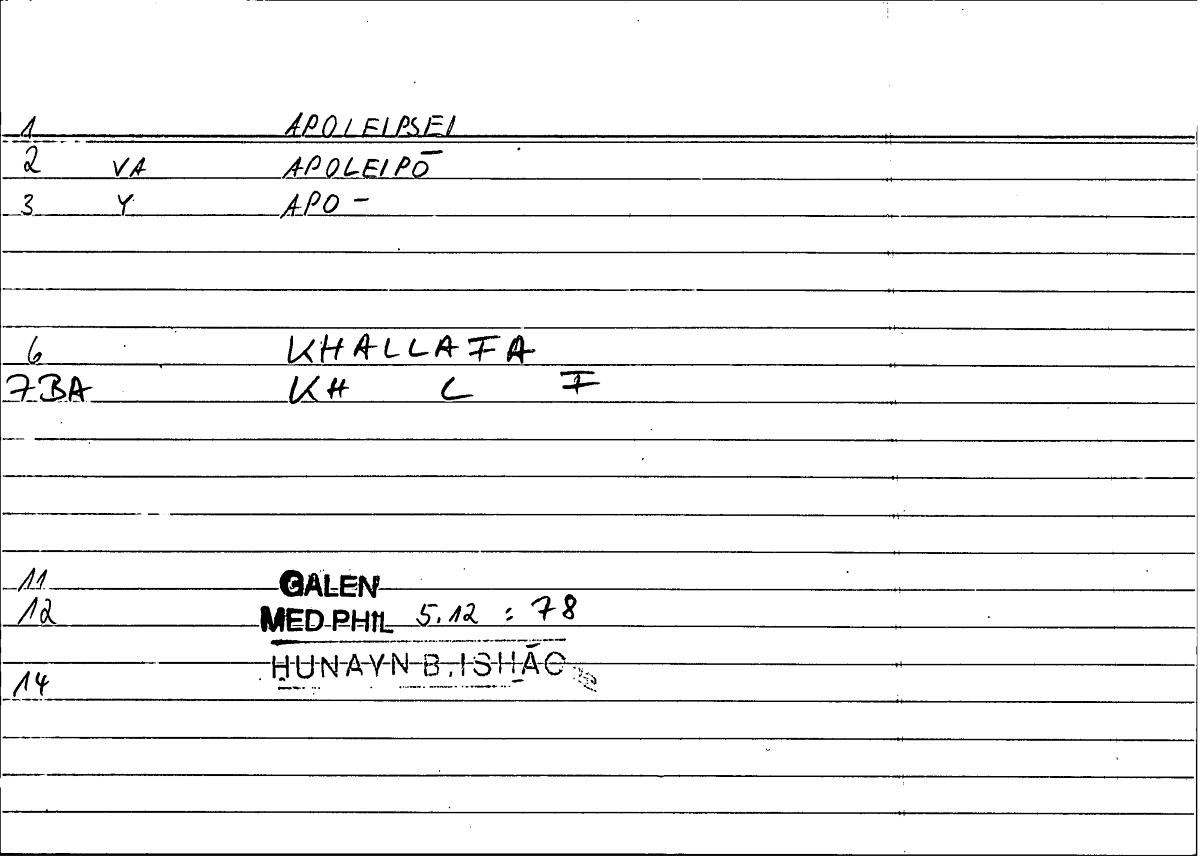 1 APOLEIPSEI
2 VA APOLEIPŌ
3 Y APO-
6 KHALLAFA
7BA KH L F
11 GALEN
12 MED PHIL 5.12 : 78
ḤUNAYN B. ISḤĀQ
14